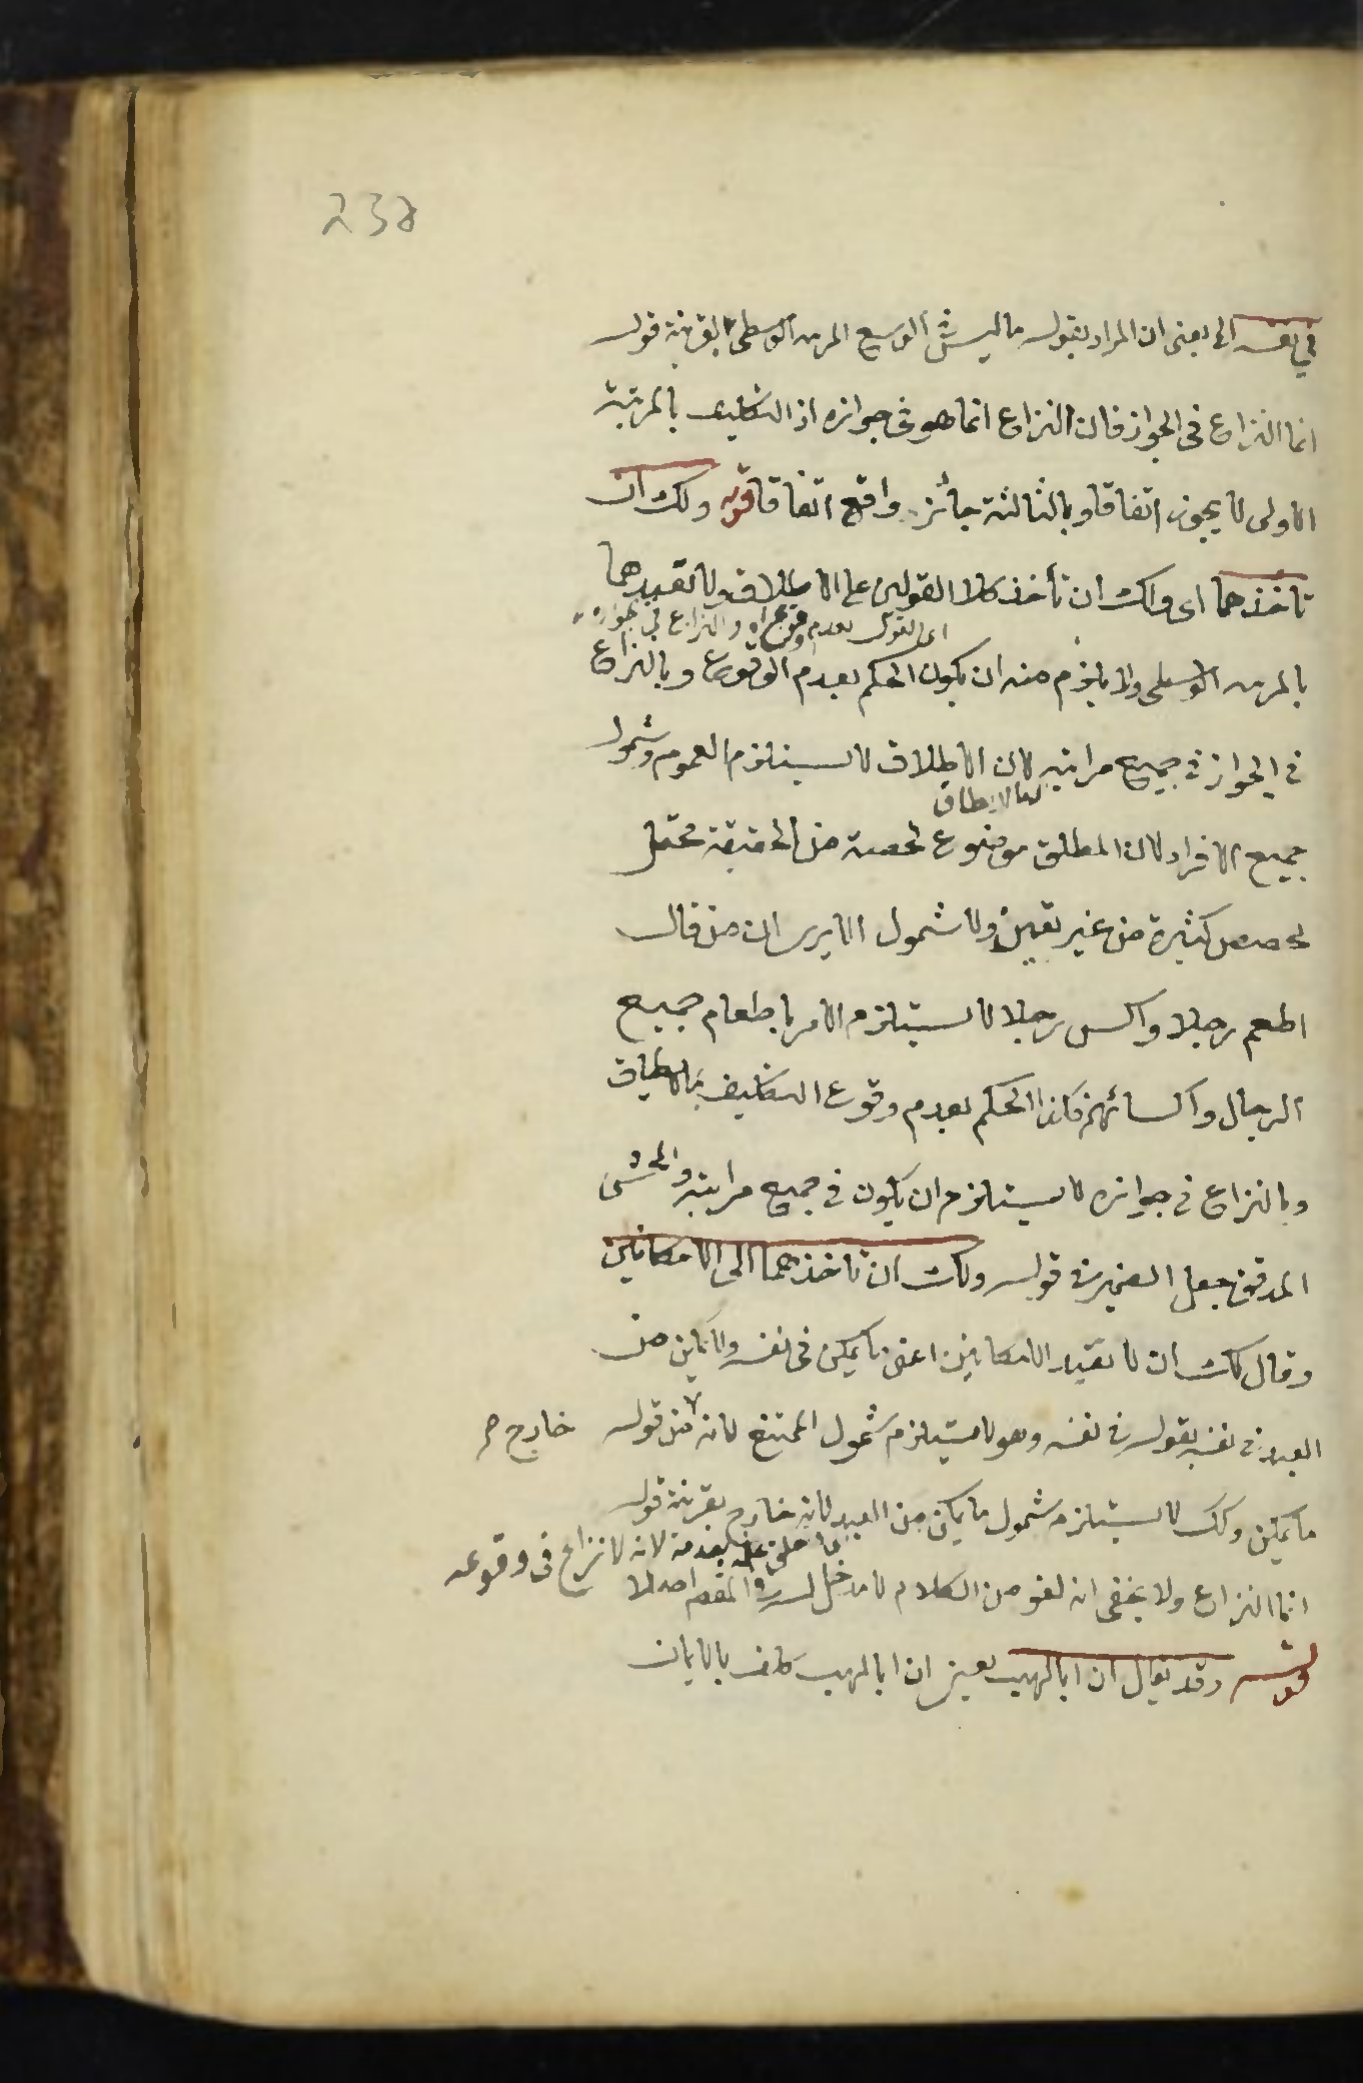 238
في نفسه الخ يعنى ان المراد بقوله ما ليس في الوسع المرتبة الوسطى بقرينة قوله
انما النزاع في الجواز فان النزاع انما هو في جوازه اذ التكليف بالمرتبة
الاولى لا يجوز اتفاقا وبالثالثة جائز وواقع اتفاقا قوله ولك ان
تأخذهما اى ولك ان تأخذ كلا القولين على الاطلاق ولا تقيدهما
اى القول بعدم وقوعه والنزاع في جوازه
بالمرتبة الوسطى ولا يلزم منه ان يكون الحكم بعدم الوقوع وبالنزاع
في الجواز في جميع مراتبه لان الاطلاق لا يستلزم العموم وشمول
لما لا يطاق
جميع الافراد لان المطلق موضوع لحصة من الحقيقة محتمل
لحصص كثيرة من غير تعين ولا شمول الا يرى ان من قال
اطعم رجلا واكس رجلا لا يستلزم الامر باطعام جميع
الرجال واكسائهم فكذا الحكم بعدم وقوع التكليف بما لا يطاق
وبالنزاع في جوازه لا يستلزم ان يكون في جميع مراتبه والمحشى
المدقق جعل الضمير في قوله ولك ان تأخذهما الى الامكانين
وقال لك ان لا تقيد الامكانين اعنى ما يمكن في نفسه ولا يمكن من
العبد في نفسه بقوله في نفسه وهو لا يستلزم شمول الممتنع لانه من قوله
خارج
ما يمكن وكك لا يستلزم شمول ما يمكن من العبد لانه خارج بقرينة قوله
لانه لا نزاع في وقوعه
انما النزاع ولا يخفى انه لغو من الكلام لا مدخل له في المقام اصلا
قوله وقد يقال ان ابا لهب يعنى ان ابا لهب كلف بالايمان